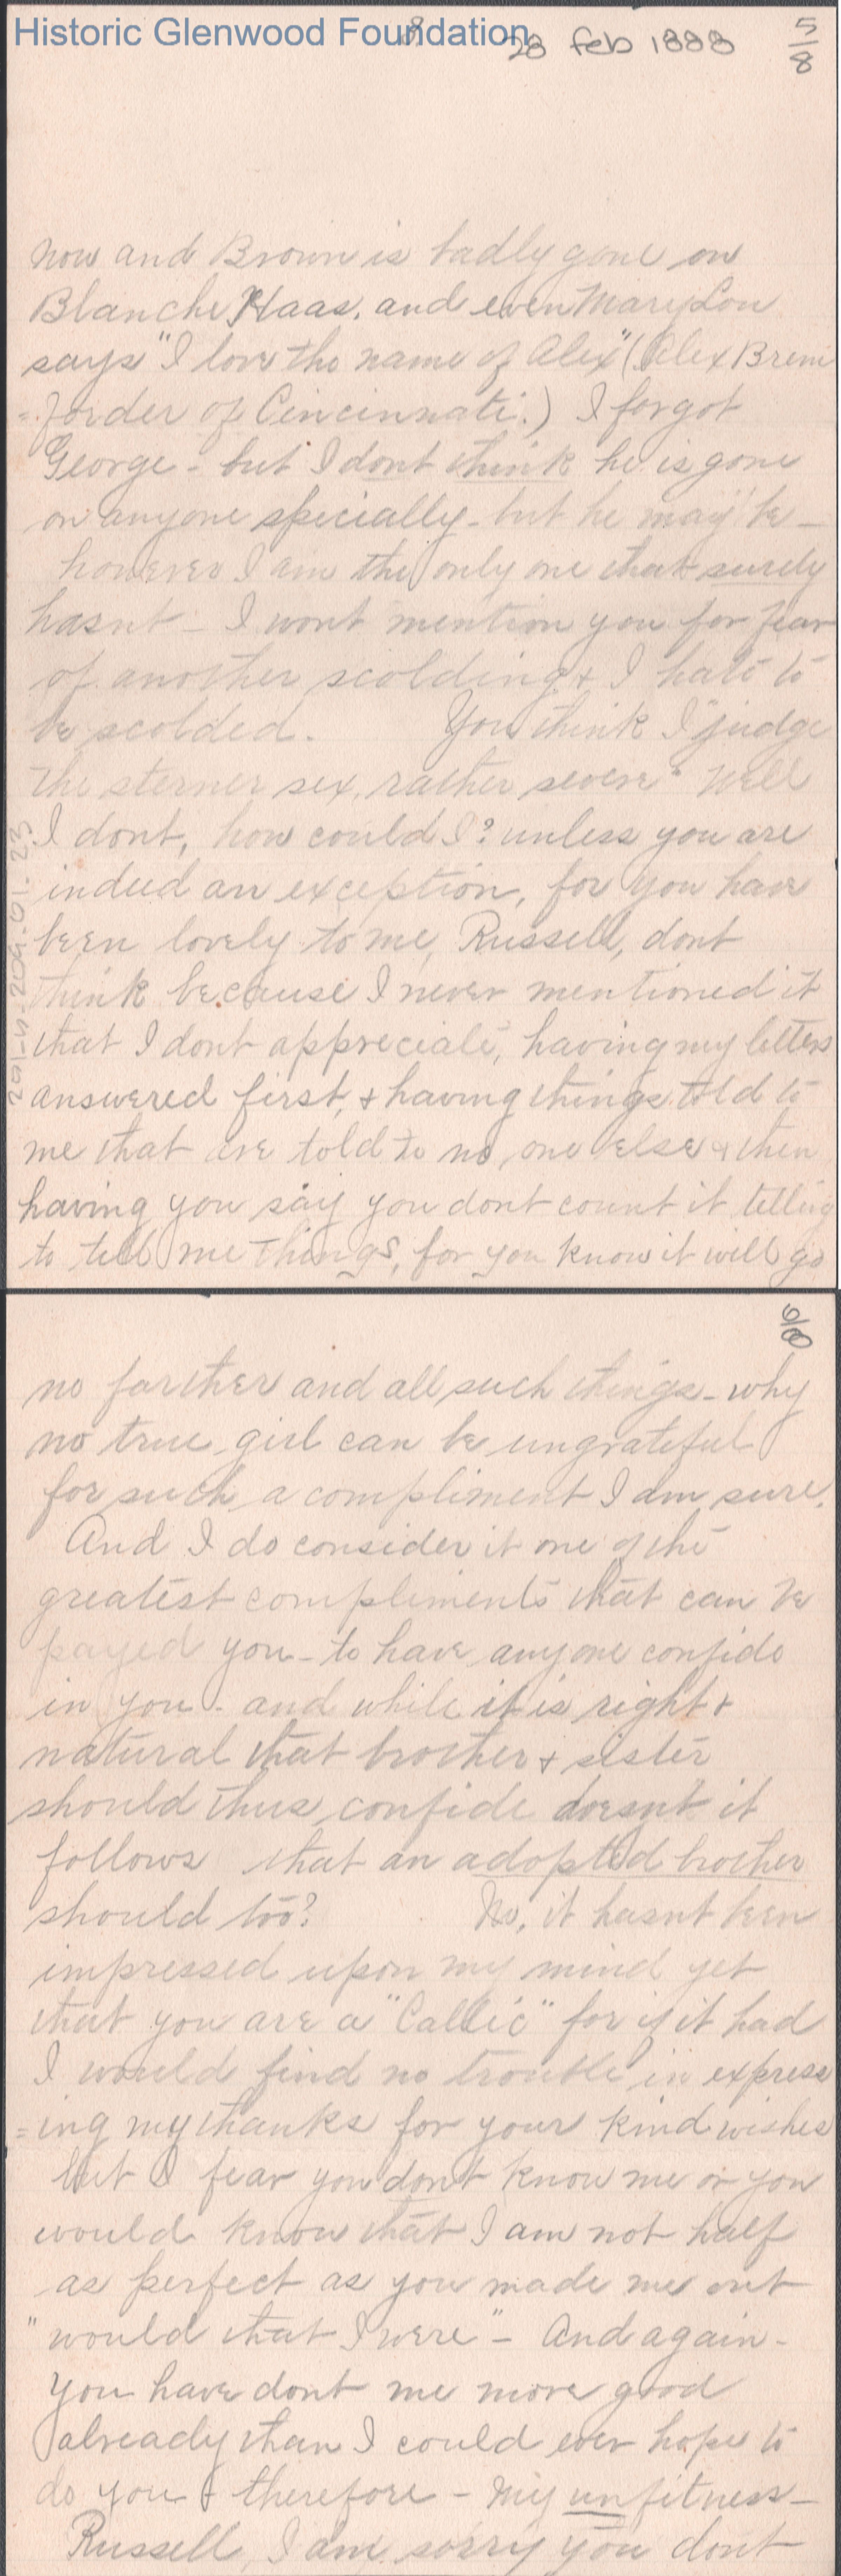 Historic Glenwood Foundation
28 Feb 1888
5/8
now and Brown is badly gone on
Blanche Haas. and even Mary Lou
says "I love the name of Alex" (Alex Brem
=forder of Cincinnati.) I forgot
George - but I dont think he is gone
on anyone specially - but he may be -
however I am the only one that surely
hasnt - I wont mention you for fear
of another scolding & I hate to
be scolded. You think I "judge
the sterner sex, rather severe" Well
I dont, how could I? unless you are
indeed an exception, for you have
been lovely to me, Russell, dont
think because I never mentioned it
that I dont appreciate, having my letters
answered first, & having things told to
me that are told to no one else & then
having you say you dont count it telling
to tell me things, for you know it will go
201-4-209-01-23
6/8
no farther and all such things - why
no true girl can be ungrateful
for such a compliment I am sure.
And I do consider it one of the
greatest compliments that can be
payed you - to have anyone confide
in you - and while it is right &
natural that brother & sister
should thus confide doesnt it
follows that an adopted brother
should too? No, it hasnt been
impressed upon my mind yet
that you are a "Callie" for if it had
I would find no trouble in express
=ing my thanks for your kind wishes
but I fear you dont know me or you
would know that I am not half
as perfect as you made me out
"would that I were" - And again -
You have dont me more good
already than I could ever hope to
do you & therefore - my unfitness -
Russell, I am sorry you dont